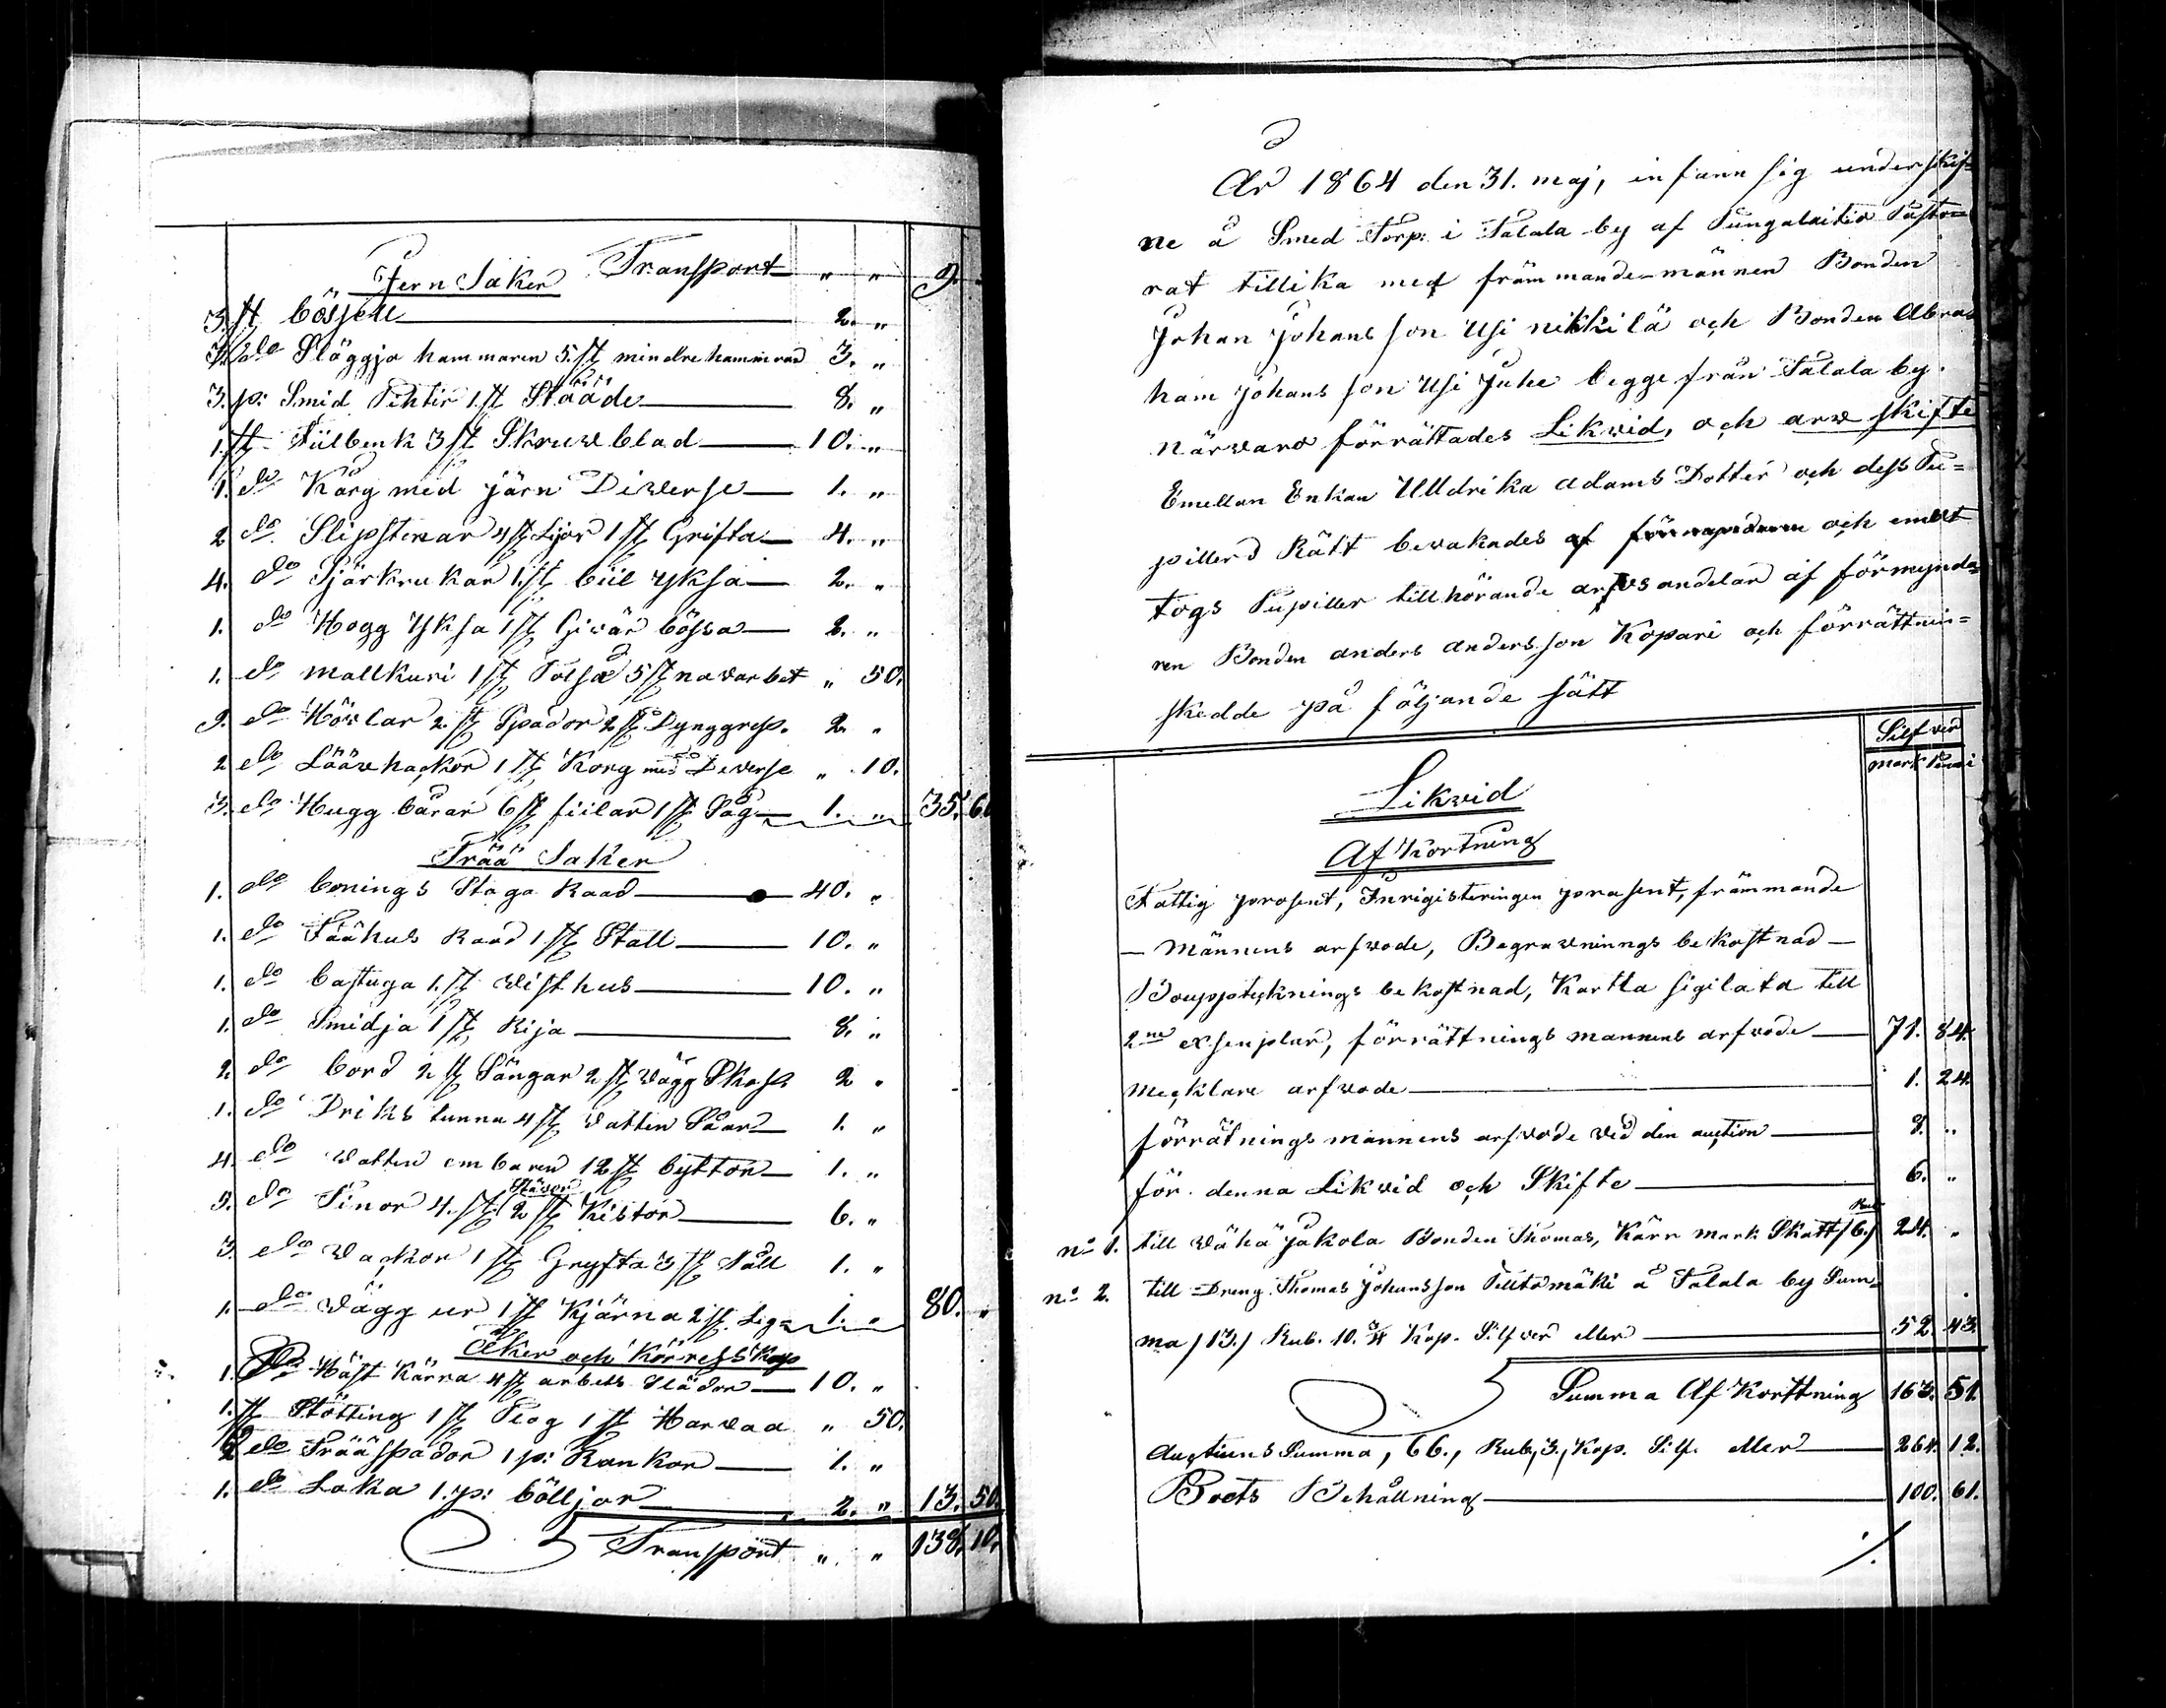 Jern Saker Transport " " 9. "
3. st bössell 2. "
3. do Släggjo hammaren 5. st mindre hammrar 3. "
3. p: Smid Tihtir 1. st Stääde 8. "
1. st Fiilbenk 3 st Skruwblad 10. "
1. do Kårg med järn Diwerse 1. "
2 do Slipstenar 4 st Lijor 1 st Grifta 4. "
4. do Tjärkrukar 1. st biil yksa 2. "
1. do Hogg yksa 1 st Giwär bössa 2. "
1. do mallkuri 1 st 5 st nawarbet " 50.
2. do Höwlar 2. st Spador 2 st Dynggrep. 2. "
2 do Lääwhackor 1 st Korg med Dewerse " 10.
3. do Hugg bårar 6 st fiilar 1 st Såg 1. " 35. 60
Trää Saker
1. do bonings Stoga Raad 40. "
1. do Fäähus Raad 1 st Stall 10. "
1. do bastuga 1. st wisthus 10. "
1. do Smidja 1 st Rija 8. "
2 do bord 2 st Sängar 2 st wägg Skåp 2 "
1. do Driks tunna 4 st watten Såar 1. "
4. do watten embaren 12 st byttor 1. "
3. do Tinor 4. st Stäwor 2 st Kistor 6. "
3. do Wackor 1 st Gryfta 3 st Såll 1. "
1. do Wägg ur 1 st Kjärna 2 st. 1. " 80. "
Åker och Körresskap
1. do Häst Kärra 4 st arbets Slädor 10. "
1. st Stötting 1 st Plog 1 st Harwaa " 50.
2 do Trääspador 1 p: Rankor 1. "
1. do Loka 1. p: bölljor 2. " 13. 50.
Transport " " 138. 10.
År 1864 den 31. maj, infann sig underskif=
ne å Smed Torp: i Talala by af Pungalaitio Pasto
rat tillika med främmande-männen Bonden
Johan Johansson Usi nikkilä och Bonden Abra
ham Johansson Usi Juhe begge från Talala by.
närwaro förrättades Likwid, och arw skifte
Emellan Enkan Ulldrika Adams Dotter och dess Pu=
pillers Rätt bewakades af och emot
togs Pupiller tillhörande arfvs andelar af förmynda=
ren Bonden anders andersson Kopari och förrättnin=
skedde på följande sätt
Silfwer
mark Penni
Likwid
Af Kortning
Fattig prosent, Inrigisteringen prasent, främmande
— Männens arfwode, Begrawnings bekostnad —
Bouppteknings bekostnad, Kartta sigilata till
2ne exsenplar, förrättnings mannens arfwode 71. 84.
mecklare arfwode 1. 24.
förrätnings mannens arfwode wid den auction 8. "
för denna Likwid och Skifte 6. "
no 1. till wähä Jakola Bonden Thomas, Kärr mark Skatt /6/ Rub 24. "
no 2. till Dreng Thomas Johansson å Talala by Sum=
ma /13./ Rub. 10. 3/4 Kop. Silfwer eller 52. 43.
Summa Af Korttning 163. 51.
Auctions Summa, 66., Rub, 3., Kop. Silf. eller 264. 12.
Boets Behållning 100. 61.
./.